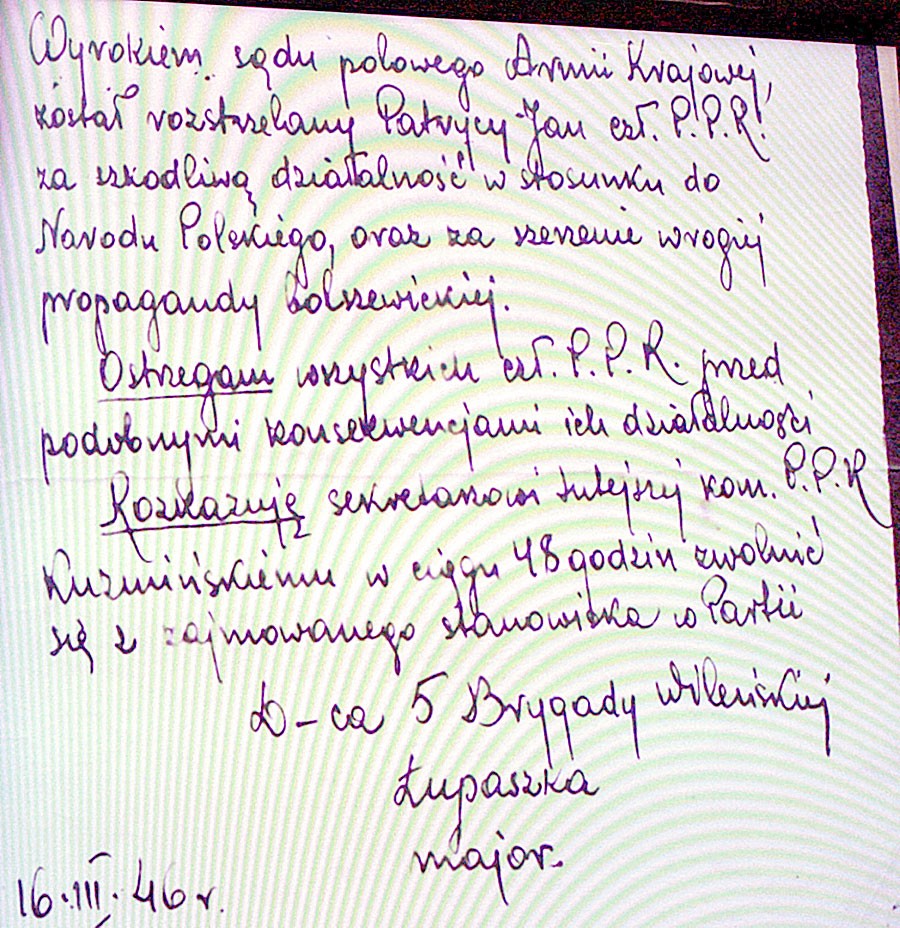 Wyrokiem sądu polowego Armii Krajowej,
został rozstrzelany Patrycy Jan czł. P.P.R.
za szkodliwą działalność w stosunku do
Narodu Polskiego, oraz za szerzenie wrogiej
propagandy bolszewickiej.
Ostrzegam wszystkich czł. P.P.R. przed
podobnymi konsekwencjami ich działalności
Rozkazuję sekretarowi tutejszej kom. P.P.R
Kuzmińskiemu w ciągu 48 godzin zwolnić
się z zajmowanego stanowiska w Partii
D-ca 5 Brygady Wileńskiej
Łupaszka
major.
16.III.46 r.